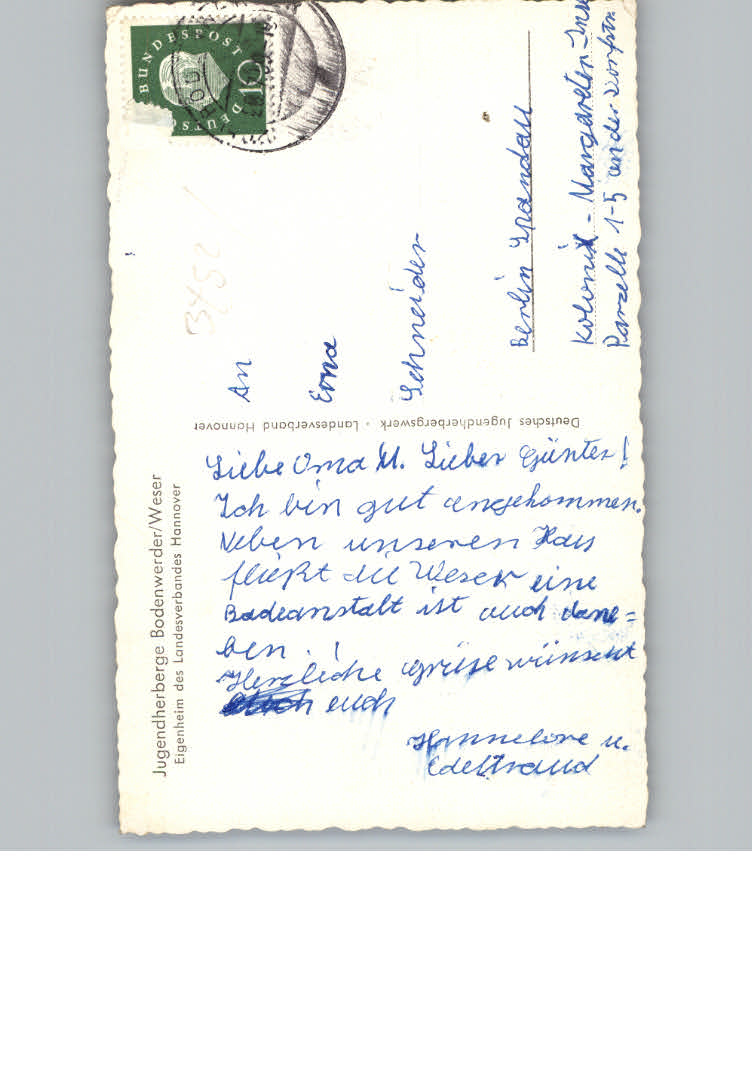 Jugendherberge Bodenwerder/Weser
Eigenheim des Landesverbandes Hannover
Liebe Oma u. Lieber Günter!
Ich bin gut angekommen.
Neben unseren Haus
fließt die Weser eine
Badeanstalt ist auch dane=
ben. !
Herzliche Grüse wünscht
euch
Hannelore u.
Edeltraud
Deutsches Jugendherbergswerk · Landesverband Hannover
DEUTSCHE BUNDESPOST
10
An
Erna
Schneider
Berlin Spandau
Kolonie - Margareten
Parzelle 1-5 an der